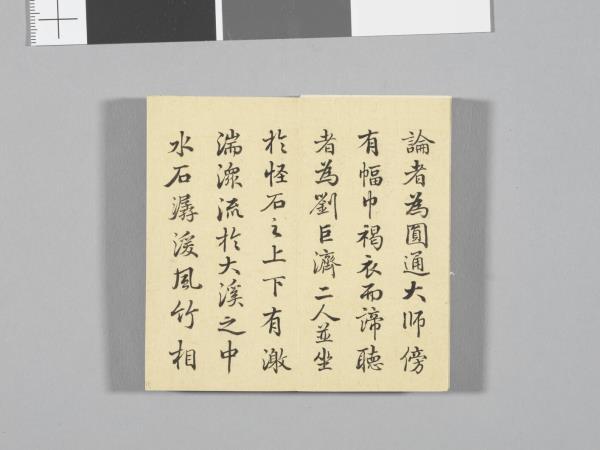 論者為圓通大師傍
有幅巾褐衣而諦聽
者為劉巨濟二人並坐
於怪石之上下有激
湍潨流於大溪之中
水石潺湲風竹相